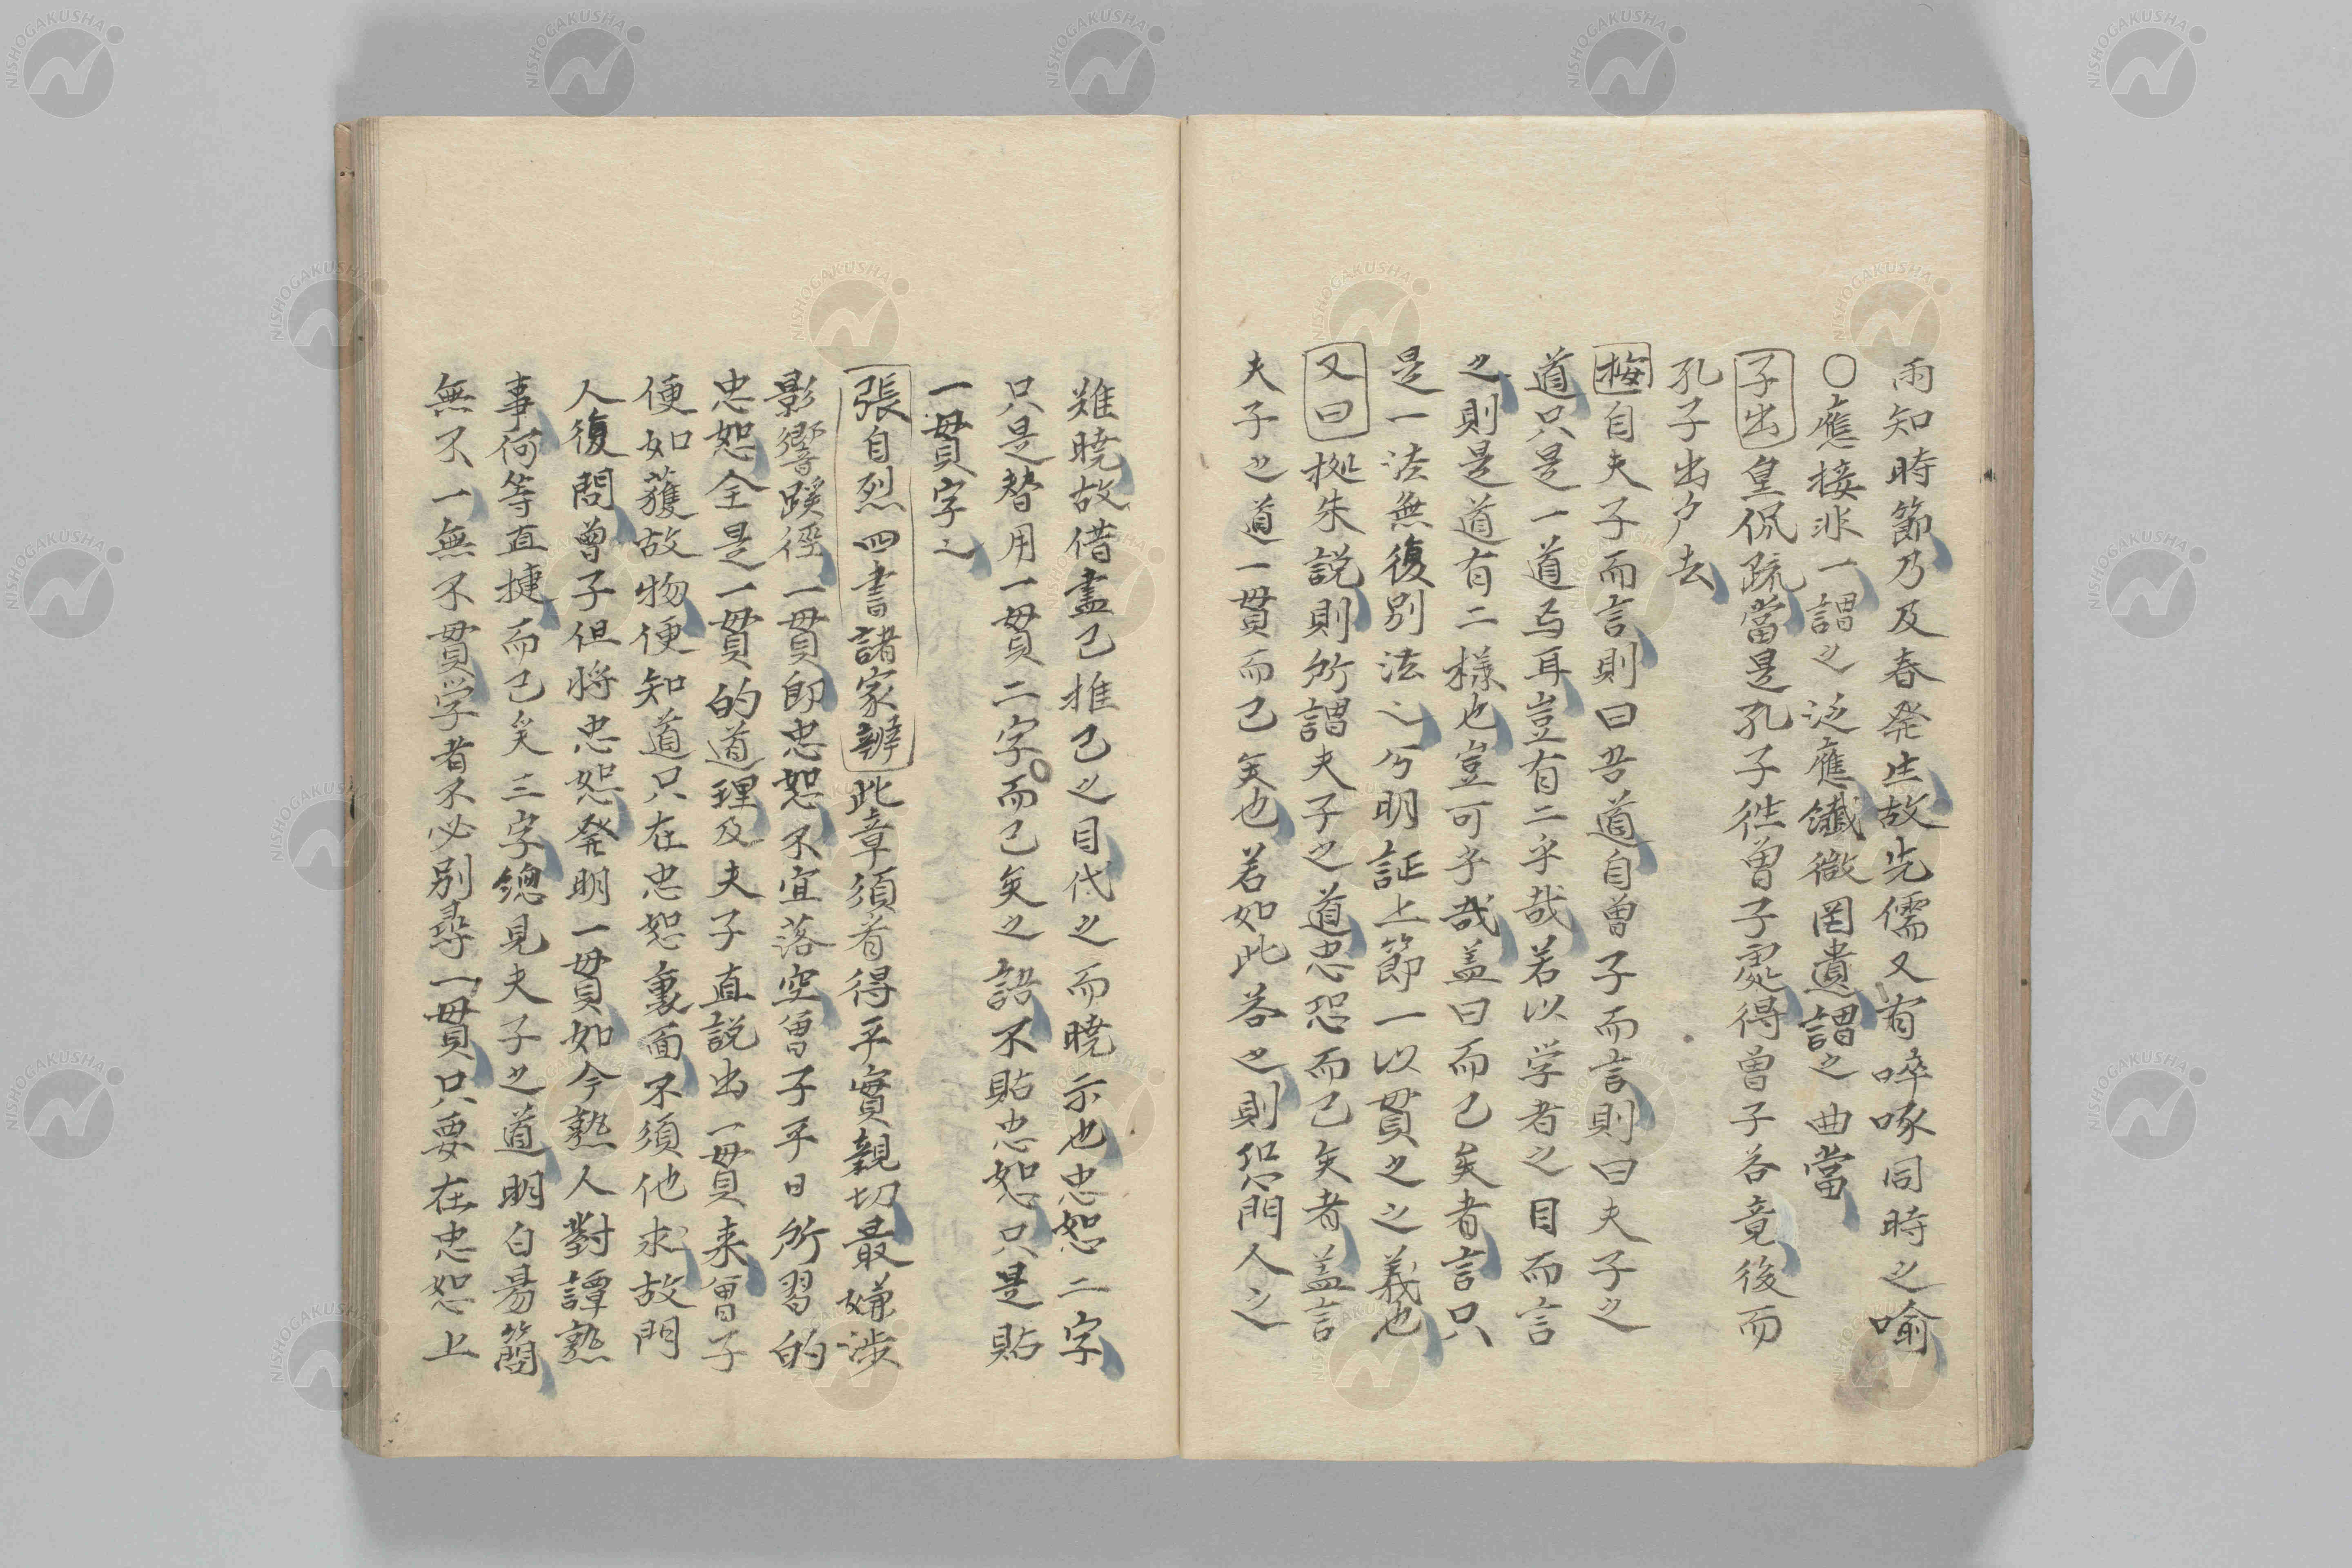 雨知時節乃及春発生故先儒又有啐啄同時之喩
○應接非一謂之泛應纎微罔遺謂之曲當
子出皇侃疏當是孔子徃曽子處得曽子荅竟後而
孔子出戸去
按自夫子而言則曰吾道自曽子而言則曰夫子之
道只是一道焉耳豈有二乎哉若以学者之目而言
之則是道有二様也豈可乎哉盖曰而已矣者言只
是一法無復別法之兮明証上節一以貫之之義也
又曰拠朱説則所謂夫子之道忠恕而已矣者盖言
夫子之道一貫而已矣也若如此荅之則恐門人之
難暁故借盡己推己之目代之而暁示也忠恕二字
只是替用一貫二字而已矣之語不貼忠恕只是貼
一貫字之
張自烈四書諸家辨此章須看得平實親切最嫌渉
影響蹊徑一貫即忠恕不宜落空曽子平日所習的
忠恕全是一貫的道理及夫子直説出一貫来曽子
便如獲故物便知道只在忠恕裏面不須他求故門
人復問曽子但将忠恕発明一貫如今熟人對譚熟
事何等直捷而已矣三字總見夫子之道明白易簡
無不一無不貫学者不必別尋一貫只要在忠恕上
NISHOGAKUSHA